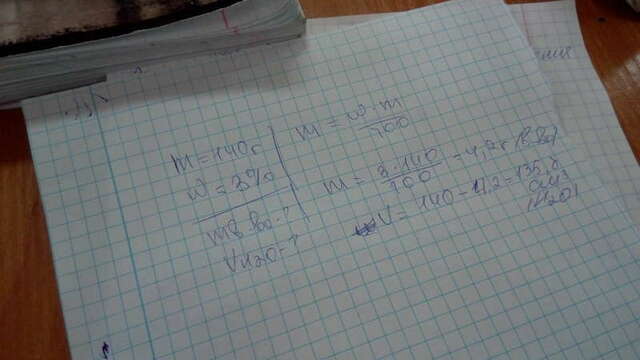 m = 140 г
w = 3%
m в-во - ?
V H2O - ?
m = w · m / 100
m = 3 · 140 / 100 = 4,2 г (в-ва)
V = 140 - 4,2 = 135,8
(H2O)